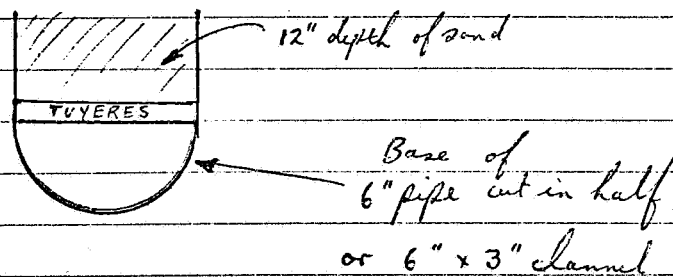 12" depth of sand
TUYERES
Base of
6" pipe cut in half
or 6" x 3" channel